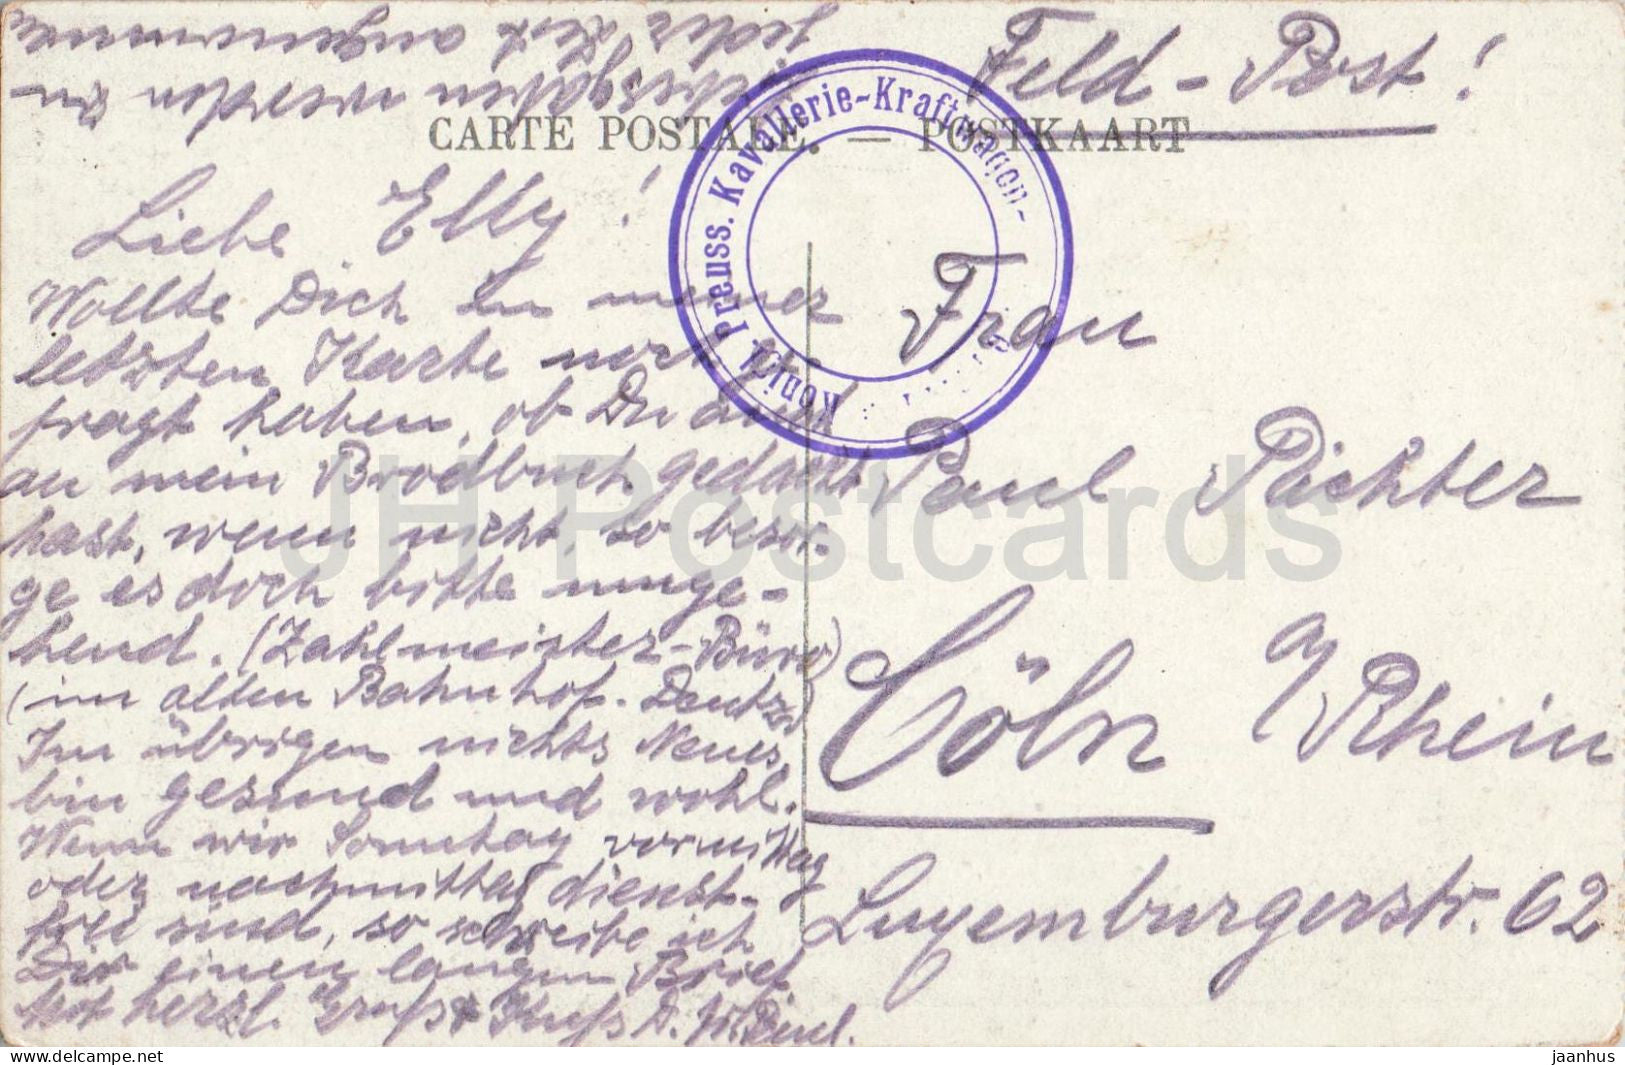 Feld-Post!
CARTE POSTALE. — POSTKAART
Königl. Preuss. Kavallerie-Kraftwagen-
Liebe Elly!
Wollte Dich in meiner
letzten Karte noch ge
fragt haben, ob Du auch
an mein Brodbuch gedacht
hast, wenn nicht, so besor-
ge es doch bitte umge-
hend. (Zahlmeister-Büro)
(im alten Bahnhof. Deutz)
Im übrigen nichts Neues,
bin gesund und wohl.
Wenn wir Sonntag vormittag
oder nachmittag dienst-
frei sind, so schreibe ich
Dir einen langen Brief
Mit herzl. Gruß & Kuß D. Paul.
werden zu
jeder Zeit angenommen
Frau
Paul Pächter
Cöln a/Rhein
Luxemburgerstr. 62
JH Postcards
www.delcampe.net
jaanhus